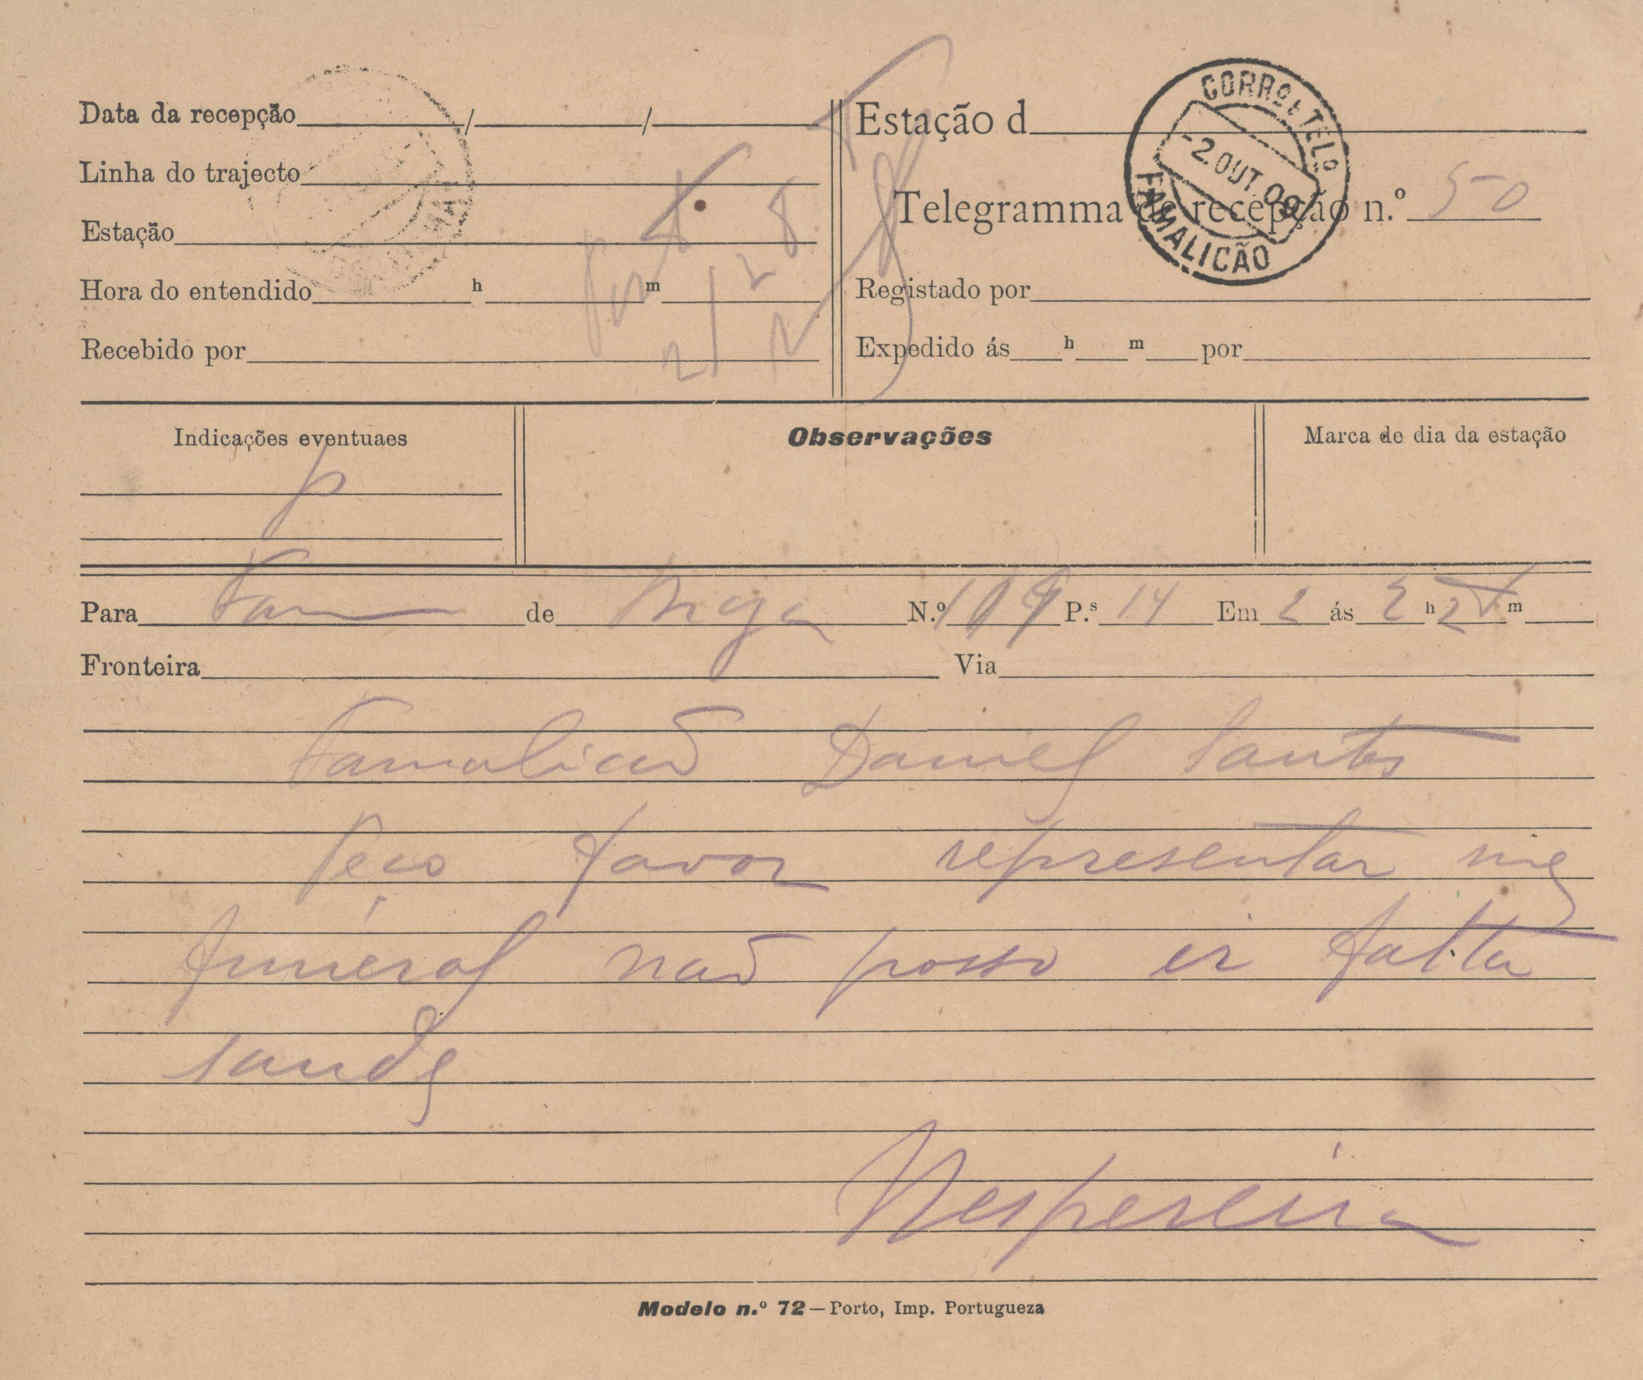 Data da recepção / /
Linha do trajecto
Estação
Hora do entendido h m
Recebido por
Estação d
CORRO E TELO
-2.OUT.09
FAMALICÃO
Telegramma de recepção n.º 50
Registado por
Expedido ás h m por
Indicações eventuaes
p
Observações
Marca do dia da estação
Para Fam de N.º 109 P.s 14 Em 2 ás 2 h 25 m
Fronteira Via
Famalicão Daniel Santos
Peço favor representar me
funeral não posso ir falta
saude
Nespereira
Modelo n.º 72—Porto, Imp. Portugueza